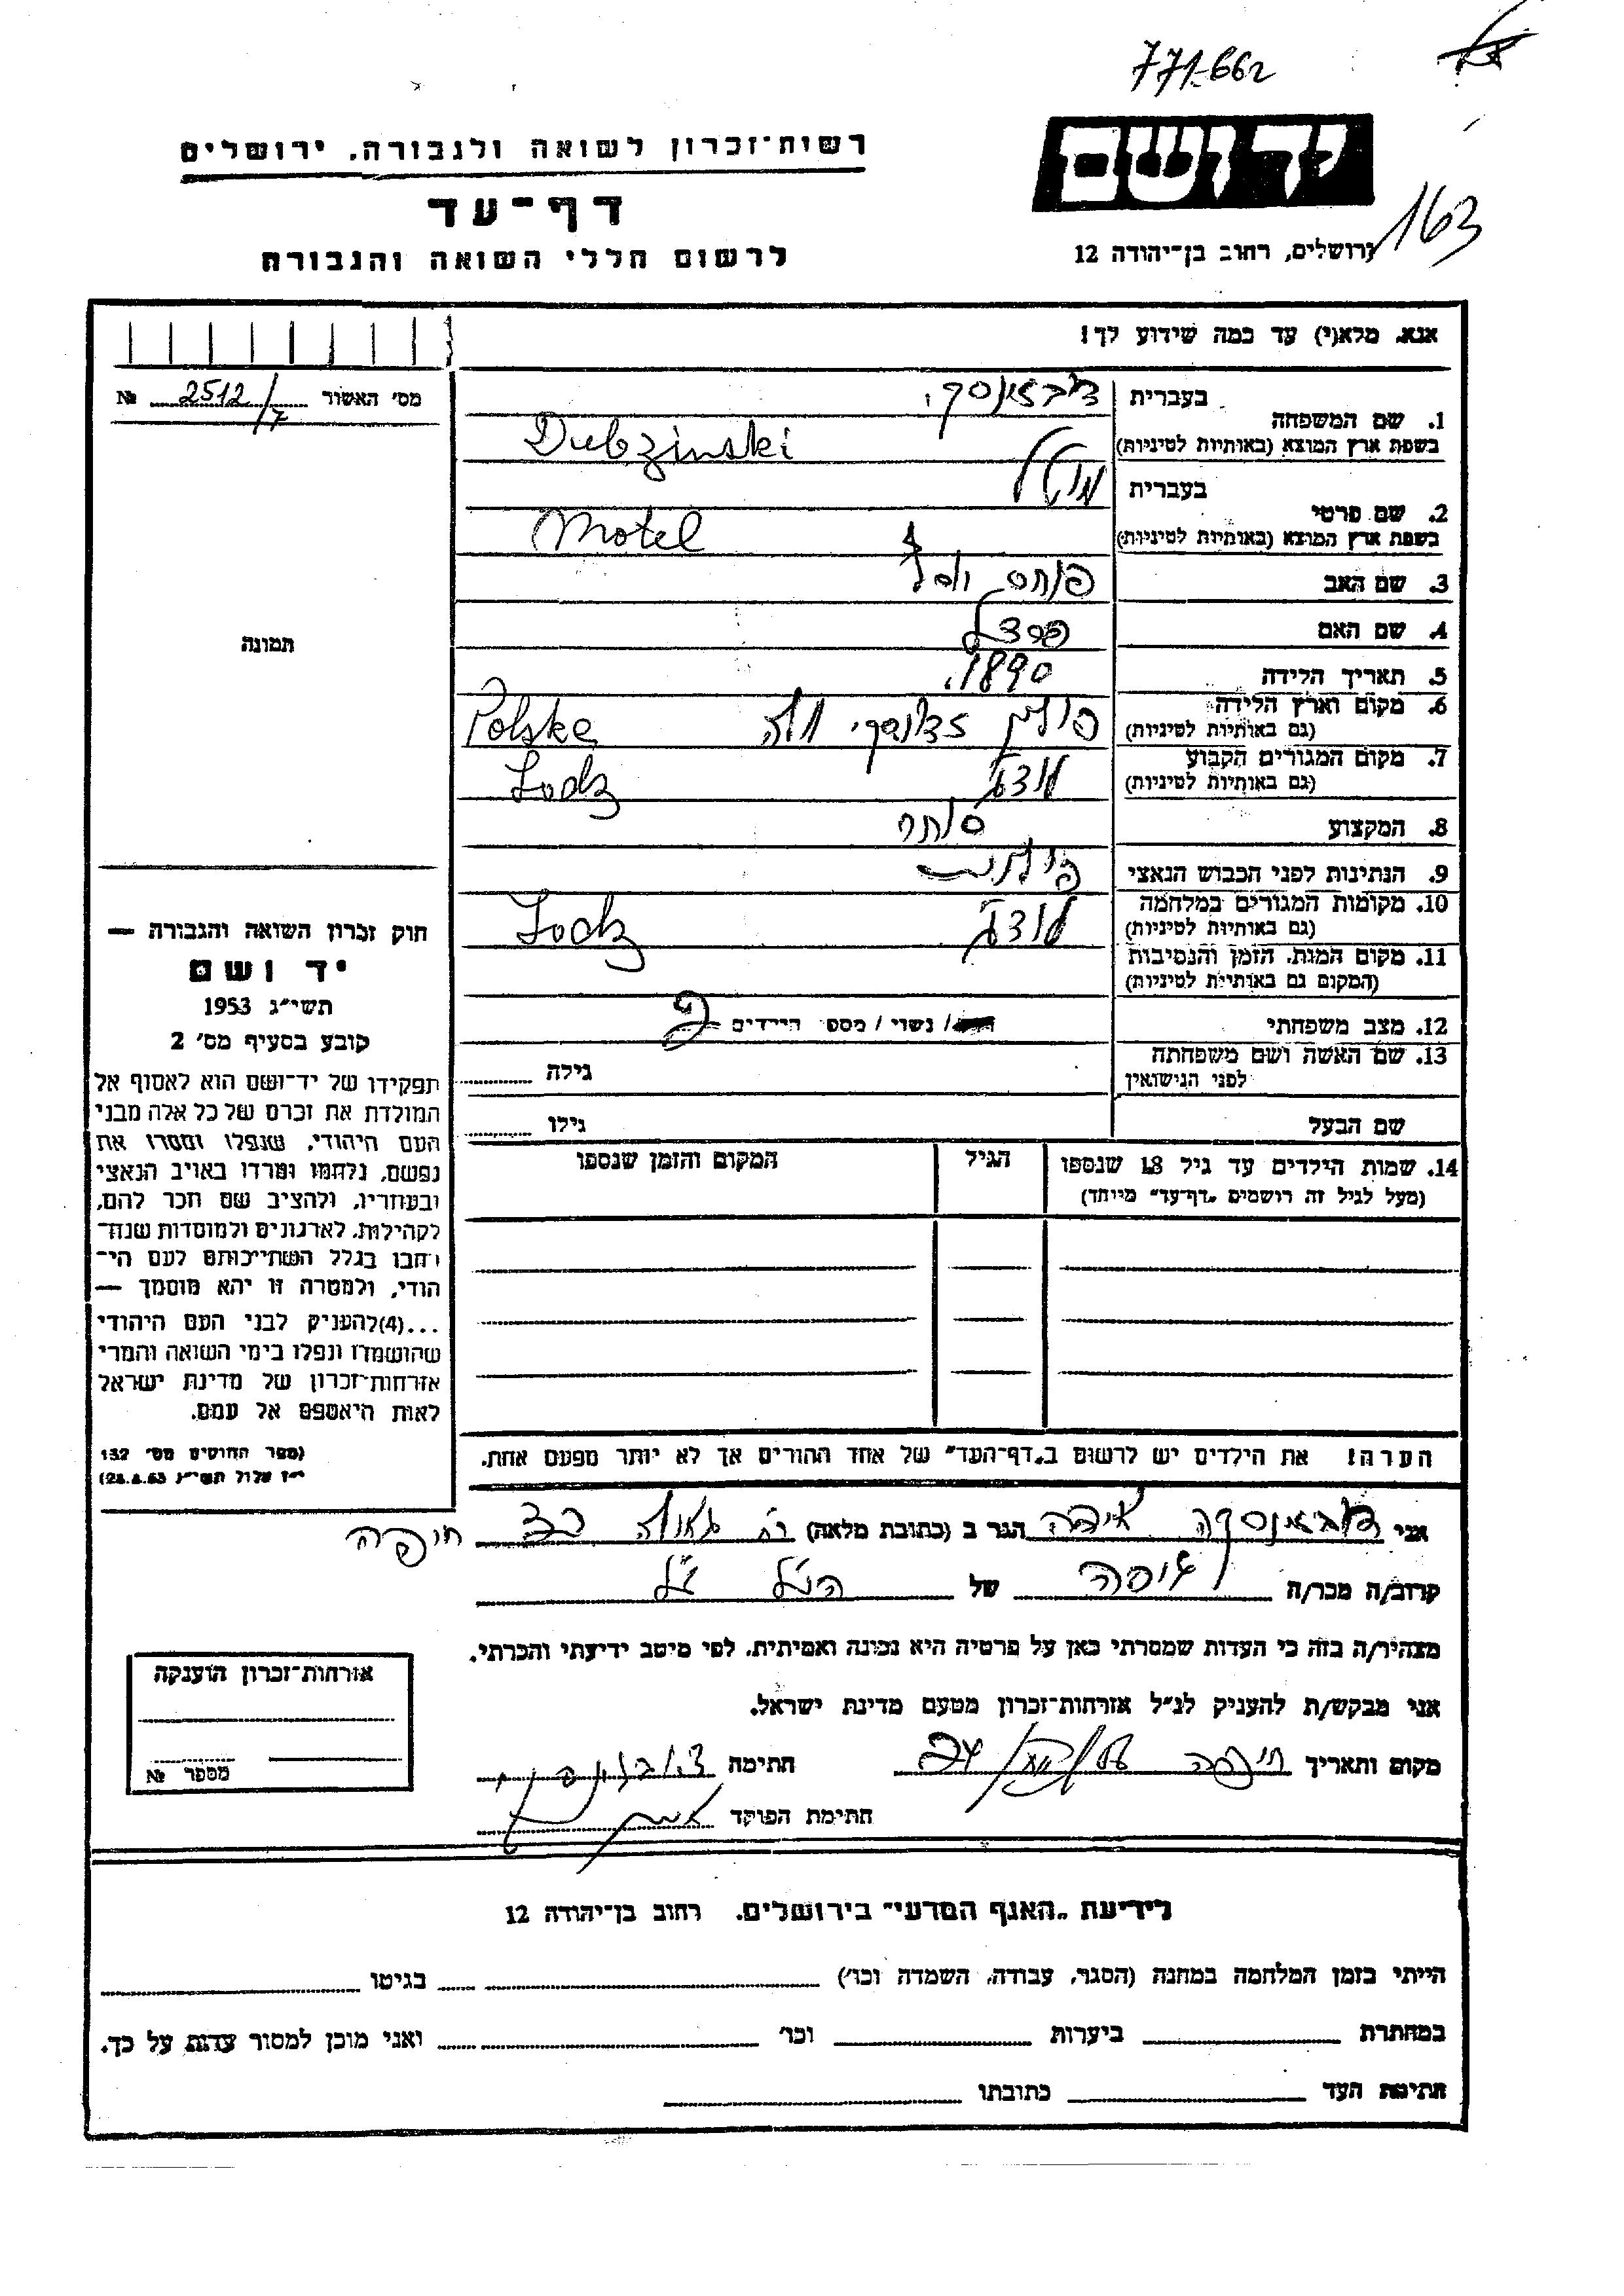 771-662
רשות־זכרון לשואה ולגבורה, ירושלים
יד ושם
דף־עד
163
לרשום חללי השואה והגבורה
ירושלים, רחוב בן־יהודה 12
אנא, מלא(י) עד כמה שידוע לך!
מס׳ האשור 2512/7 №
1. שם המשפחה בעברית דובזינסקי
בשפת ארץ המוצא (באותיות לטיניות) Dubzinski
2. שם פרטי בעברית מוטל
בשפת ארץ המוצא (באותיות לטיניות) Motel
3. שם האב פנחס
4. שם האם פרצל
תמונה
5. תאריך הלידה 1890
6. מקום וארץ הלידה (גם באותיות לטיניות) פולין זדונסקי וולה Polska
7. מקום המגורים הקבוע (גם באותיות לטיניות) לודז Lodz
8. המקצוע סוחר
9. הנתינות לפני הכבוש הנאצי פולנית
10. מקומות המגורים במלחמה (גם באותיות לטיניות) לודז Lodz
11. מקום המות, הזמן והנסיבות (המקום גם באותיות לטיניות)
12. מצב משפחתי / נשוי / מספר הילדים
13. שם האשה ושם משפחתה לפני הנישואין גילה
שם הבעל גילו
14. שמות הילדים עד גיל 18 שנספו הגיל המקום והזמן שנספו
(מעל לגיל זה רושמים „דף־עד״ מיוחד)
הערה! את הילדים יש לרשום ב„דף־העד״ של אחד ההורים אך לא יותר מפעם אחת.
חוק זכרון השואה והגבורה —
יד ושם
תשי״ג 1953
קובע בסעיף מס׳ 2
תפקידו של יד־ושם הוא לאסוף אל
המולדת את זכרם של כל אלה מבני
העם היהודי, שנפלו ומסרו את
נפשם, נלחמו ומרדו באויב הנאצי
ובעוזריו, ולהציב שם וזכר להם,
לקהילות, לארגונים ולמוסדות שנח־
רבו בגלל השתייכותם לעם הי־
הודי, ולמטרה זו יהא מוסמך —
...(4)להעניק לבני העם היהודי
שהושמדו ונפלו בימי השואה והמרי
אזרחות־זכרון של מדינת ישראל
לאות היאספם אל עמם.
(ספר החוקים מס׳ 132
י״ז אלול תשי״ג 28.8.53)
אני דובזינסקה הגר ב (כתובת מלאה) רח׳ גאולה חיפה
קרוב/ה מכר/ה גיסה של הנ״ל
מצהיר/ה בזה כי העדות שמסרתי כאן על פרטיה היא נכונה ואמיתית, לפי מיטב ידיעתי והכרתי.
אני מבקש/ת להעניק לנ״ל אזרחות־זכרון מטעם מדינת ישראל.
מקום ותאריך חיפה חתימה
חתימת הפוקד
אזרחות־זכרון הוענקה
מספר №
לידיעת „האגף המדעי״ בירושלים, רחוב בן־יהודה 12
הייתי בזמן המלחמה במחנה (הסגר, עבודה, השמדה וכו׳) בגיטו
במחתרת ביערות וכו׳ ואני מוכן למסור עדות על כך.
חתימת העד כתובתו